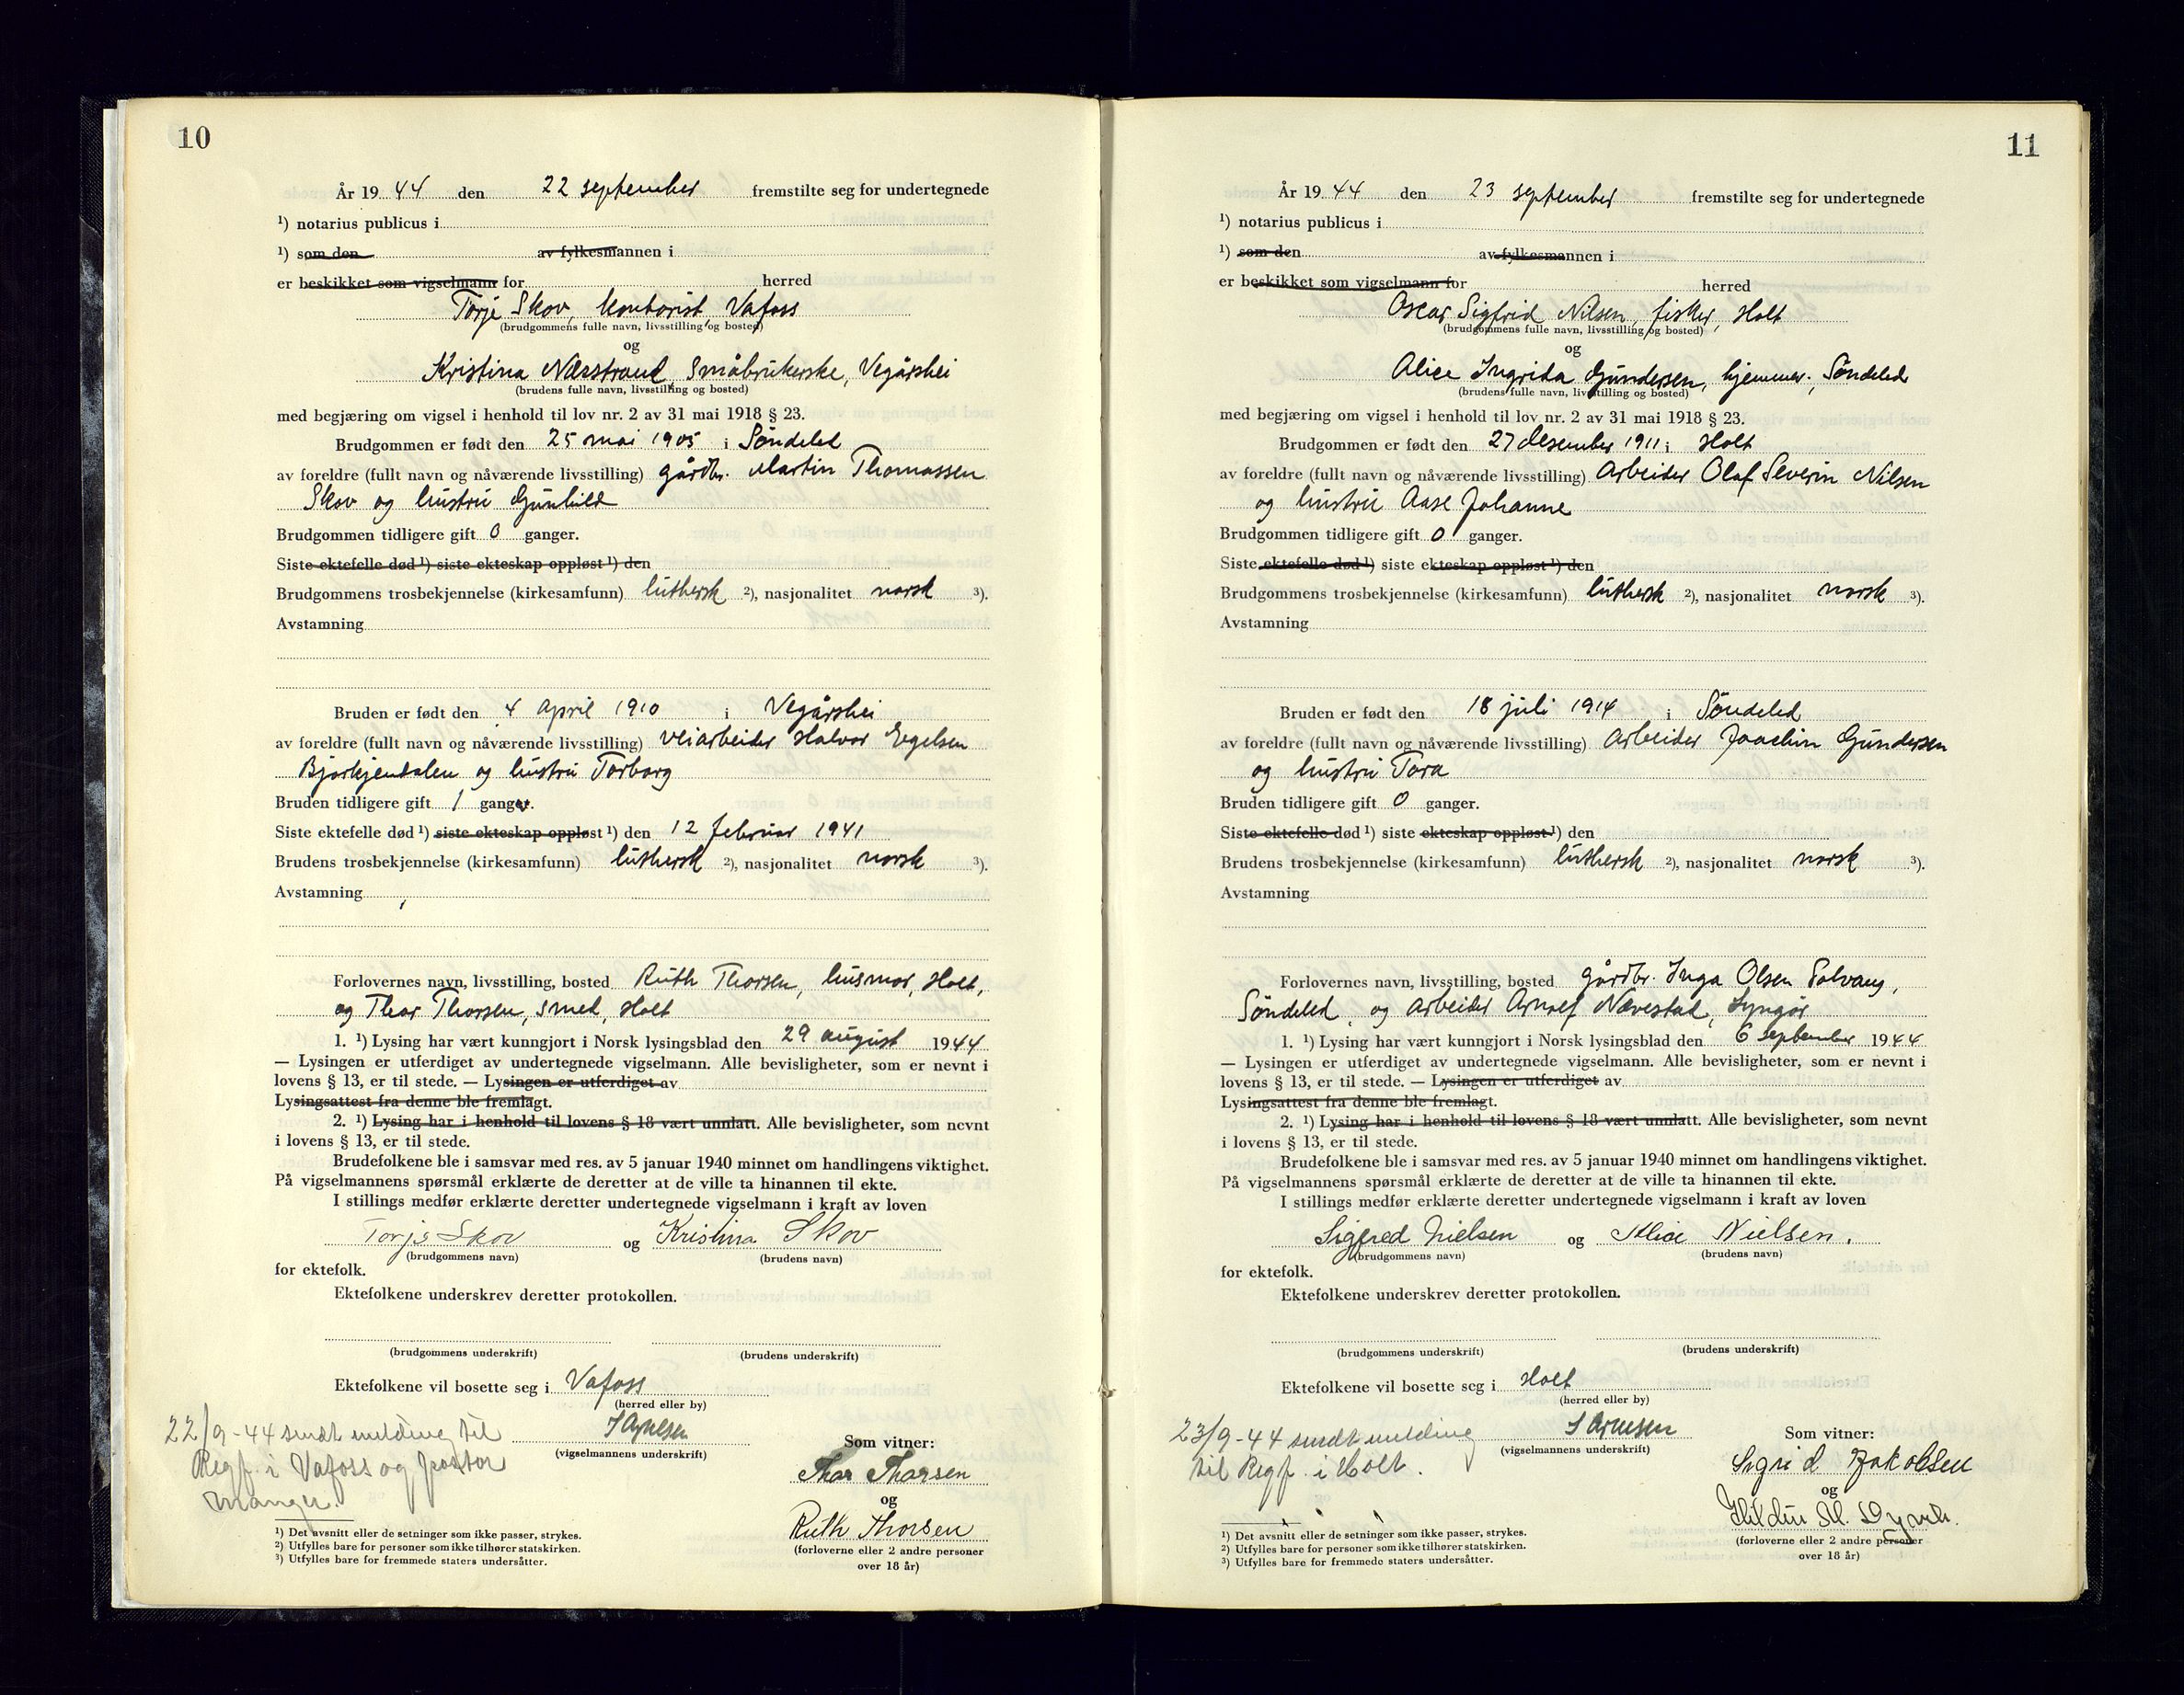 10
År 19 44 den 22 september fremstilte seg for undertegnede
¹) notarius publicus i
¹) som den av fylkesmannen i
er beskikket som vigselmann for herred
Torje Skov, kontorist, Vafoss
(brudgommens fulle navn, livsstilling og bosted)
og
Kristina Nærstrand, Småbrukerske, Vegårshei
(brudens fulle navn, livsstilling og bosted)
med begjæring om vigsel i henhold til lov nr. 2 av 31 mai 1918 § 23.
Brudgommen er født den 25 mai 1905 i Søndeled
av foreldre (fullt navn og nåværende livsstilling) gårdbr. Martin Thomassen
Skov og hustru Gunhild
Brudgommen tidligere gift 0 ganger.
Siste ektefelle død ¹) siste ekteskap oppløst ¹) den
Brudgommens trosbekjennelse (kirkesamfunn) luthersk ²), nasjonalitet norsk ³).
Avstamning
Bruden er født den 4 April 1910 i Vegårshei
av foreldre (fullt navn og nåværende livsstilling) veiarbeider Halvor
og hustru Torborg
Bruden tidligere gift 1 ganger.
Siste ektefelle død ¹) siste ekteskap oppløst ¹) den 12 februar 1941
Brudens trosbekjennelse (kirkesamfunn) luthersk ²), nasjonalitet norsk ³).
Avstamning
Forlovernes navn, livsstilling, bosted Ruth Thorsen, husmor, Holt,
og Thor Thorsen, smed, Holt
1. ¹) Lysing har vært kunngjort i Norsk lysingsblad den 29 august 1944
— Lysingen er utferdiget av undertegnede vigselmann. Alle bevisligheter, som er nevnt i
lovens § 13, er til stede. — Lysingen er utferdiget av
Lysingsattest fra denne ble fremlagt.
2. ¹) Lysing har i henhold til lovens § 18 vært unnlatt. Alle bevisligheter, som nevnt
i lovens § 13, er til stede.
Brudefolkene ble i samsvar med res. av 5 januar 1940 minnet om handlingens viktighet.
På vigselmannens spørsmål erklærte de deretter at de ville ta hinannen til ekte.
I stillings medfør erklærte deretter undertegnede vigselmann i kraft av loven
Torje Skov og Kristina Skov
(brudgommens navn) (brudens navn)
for ektefolk.
Ektefolkene underskrev deretter protokollen.
(brudgommens underskrift) (brudens underskrift)
Ektefolkene vil bosette seg i Vafoss
(herred eller by)
22/9-44 sendt melding til
(vigselmannens underskrift)
Regf. i Vafoss og pastor
Som vitner:
Thor Thorsen
og
Ruth Thorsen
(forloverne eller 2 andre personer
over 18 år)
¹) Det avsnitt eller de setninger som ikke passer, strykes.
²) Utfylles bare for personer som ikke tilhører statskirken.
³) Utfylles bare for fremmede staters undersåtter.
11
År 19 44 den 23 september fremstilte seg for undertegnede
¹) notarius publicus i
¹) som den av fylkesmannen i
er beskikket som vigselmann for herred
Oscar Sigfrid Nilsen, fisker, Holt
(brudgommens fulle navn, livsstilling og bosted)
og
Alice Ingrida Gundersen, hjemmev., Søndeled
(brudens fulle navn, livsstilling og bosted)
med begjæring om vigsel i henhold til lov nr. 2 av 31 mai 1918 § 23.
Brudgommen er født den 27 desember 1911 i Holt
av foreldre (fullt navn og nåværende livsstilling) Arbeider Olaf Severin Nilsen
og hustru Aase Johanne
Brudgommen tidligere gift 0 ganger.
Siste ektefelle død ¹) siste ekteskap oppløst ¹) den
Brudgommens trosbekjennelse (kirkesamfunn) luthersk ²), nasjonalitet norsk ³).
Avstamning
Bruden er født den 18 juli 1914 i Søndeled
av foreldre (fullt navn og nåværende livsstilling) Arbeider Joachim Gundersen
og hustru Tora
Bruden tidligere gift 0 ganger.
Siste ektefelle død ¹) siste ekteskap oppløst ¹) den
Brudens trosbekjennelse (kirkesamfunn) luthersk ²), nasjonalitet norsk ³).
Avstamning
Forlovernes navn, livsstilling, bosted gårdbr. Inga Olsen Solvang,
Søndeled, og arbeider Arnolf Nævestad, Lyngør
1. ¹) Lysing har vært kunngjort i Norsk lysingsblad den 6 september 1944
— Lysingen er utferdiget av undertegnede vigselmann. Alle bevisligheter, som er nevnt i
lovens § 13, er til stede. — Lysingen er utferdiget av
Lysingsattest fra denne ble fremlagt.
2. ¹) Lysing har i henhold til lovens § 18 vært unnlatt. Alle bevisligheter, som nevnt
i lovens § 13, er til stede.
Brudefolkene ble i samsvar med res. av 5 januar 1940 minnet om handlingens viktighet.
På vigselmannens spørsmål erklærte de deretter at de ville ta hinannen til ekte.
I stillings medfør erklærte deretter undertegnede vigselmann i kraft av loven
Sigfred Nielsen og Alice Nielsen.
(brudgommens navn) (brudens navn)
for ektefolk.
Ektefolkene underskrev deretter protokollen.
(brudgommens underskrift) (brudens underskrift)
Ektefolkene vil bosette seg i Holt
(herred eller by)
23/9-44 sendt melding
til Regf. i Holt.
(vigselmannens underskrift)
Som vitner:
Sigrid Jakobsen
og
(forloverne eller 2 andre personer
over 18 år)
¹) Det avsnitt eller de setninger som ikke passer, strykes.
²) Utfylles bare for personer som ikke tilhører statskirken.
³) Utfylles bare for fremmede staters undersåtter.